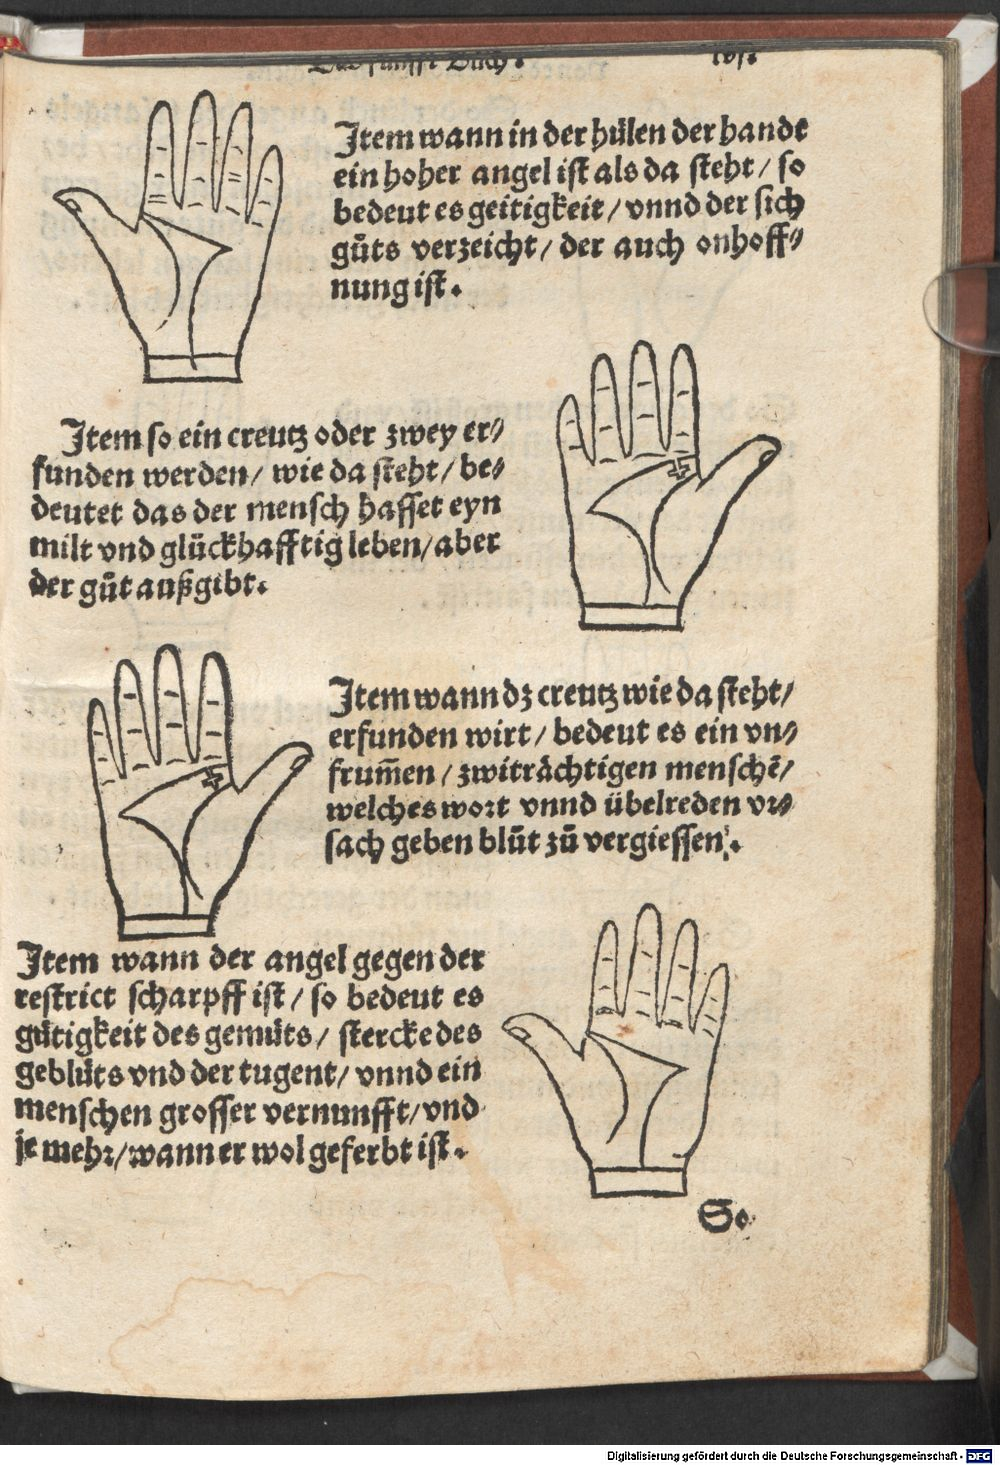 Das fünfft Buch.
lvj.
Item wann in der hülen der handt
ein hoher angel ist als da steht/ so
bedeut es geitigkeit/ vnnd der sich
gůts verzeicht/ der auch onhoff⸗
nung ist.
Item so ein creutz oder zwey er⸗
funden werden/ wie da steht/ be⸗
deutet das der mensch hasset eyn
milt vnd glückhafftig leben/ aber
der gůt außgibt.
Item wann dz creutz wie da steht/
erfunden wirt/ bedeut es ein vn⸗
frum̄en/ zwiträchtigen mensch̄e/
welches wort vnnd übelreden vr⸗
sach geben blůt zů vergiessen.
Item wann der angel gegen der
restrict scharpff ist/ so bedeut es
gütigkeit des gemüts/ stercke des
geblüts vnd der tugent/ vnnd ein
menschen grosser vernunfft/ vnd
je mehr/ wann er wol geferbt ist.
So
Digitalisierung gefördert durch die Deutsche Forschungsgemeinschaft - DFG